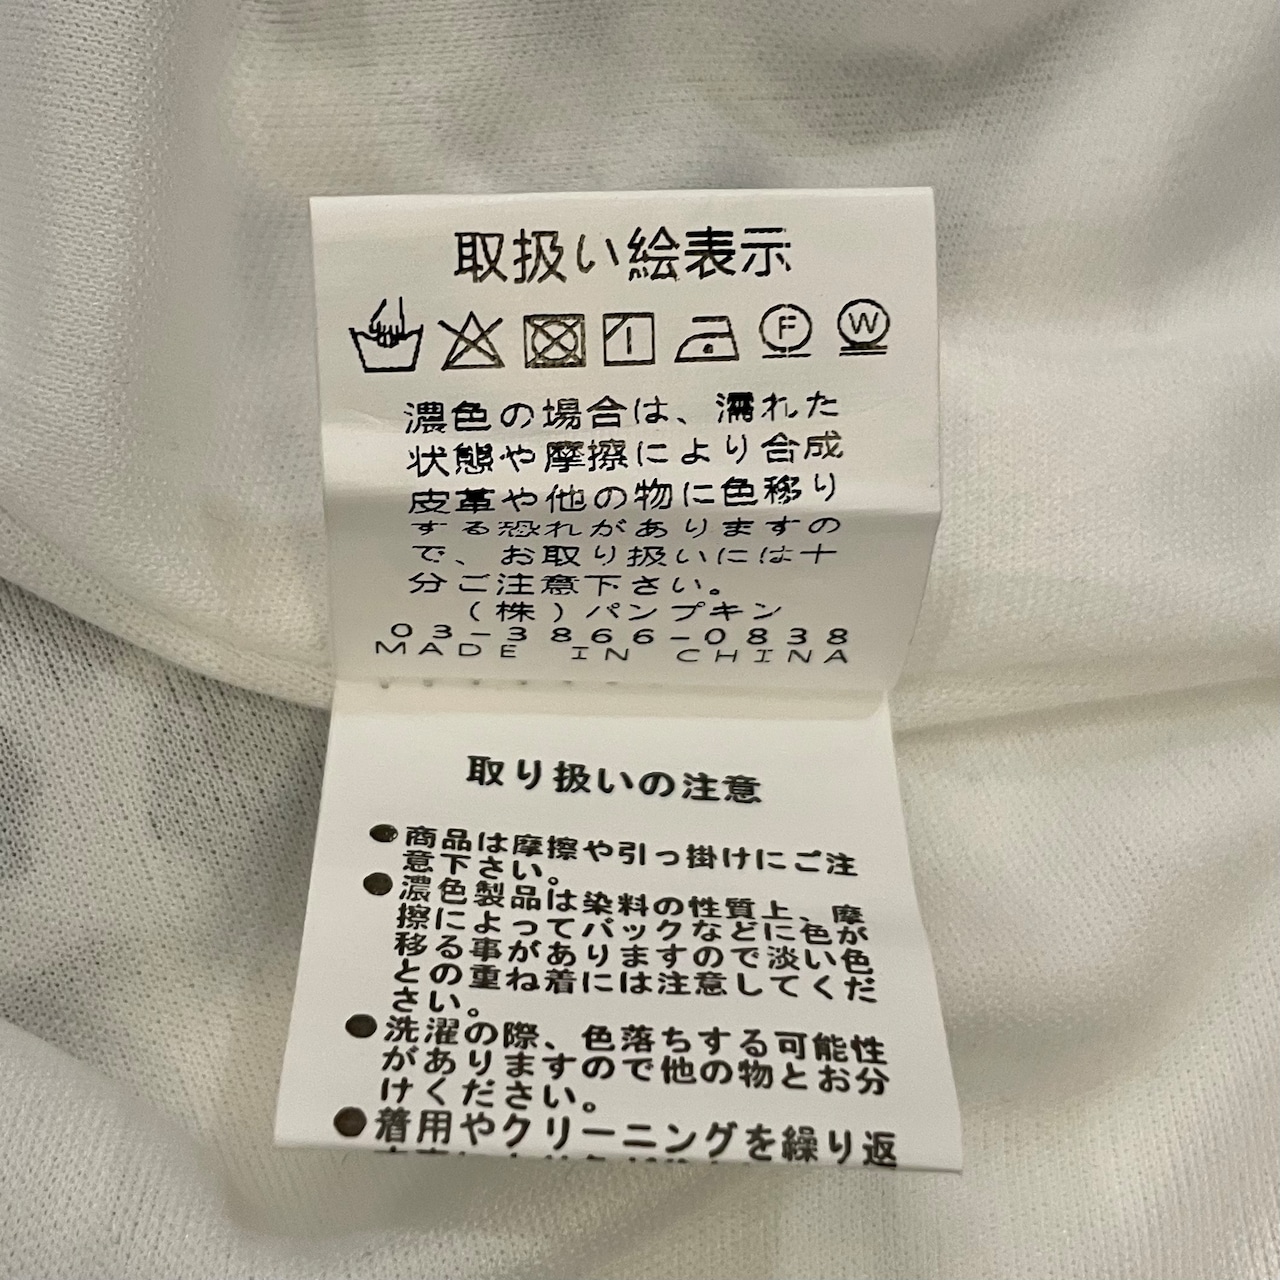 取扱い絵表示
F W
濃色の場合は、濡れた
状態や摩擦により合成
皮革や他の物に色移り
する恐れがありますの
で、お取り扱いには十
分ご注意下さい。
(株)パンプキン
03-3866-0838
MADE IN CHINA
取り扱いの注意
●商品は摩擦や引っ掛けにご注
意下さい。
●濃色製品は染料の性質上、摩
擦によってバックなどに色が
移る事がありますので淡い色
との重ね着には注意してくだ
さい。
●洗濯の際、色落ちする可能性
がありますので他の物とお分
けください。
●着用やクリーニングを繰り返